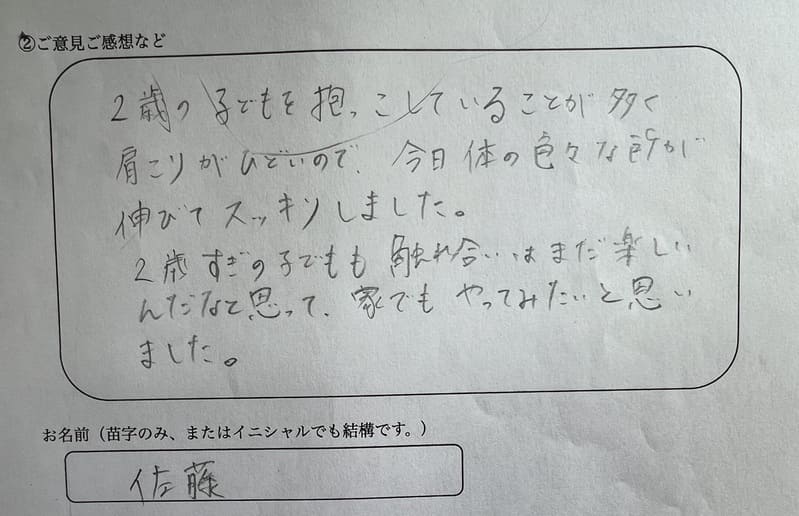 ②ご意見ご感想など
2歳の子どもを抱っこしていることが多く
肩こりがひどいので、今日体の色々な部分が
伸びてスッキリしました。
2歳すぎの子どもも触れ合いはまだ楽しい
んだなと思って、家でもやってみたいと思い
ました。
お名前（苗字のみ、またはイニシャルでも結構です。）
佐藤